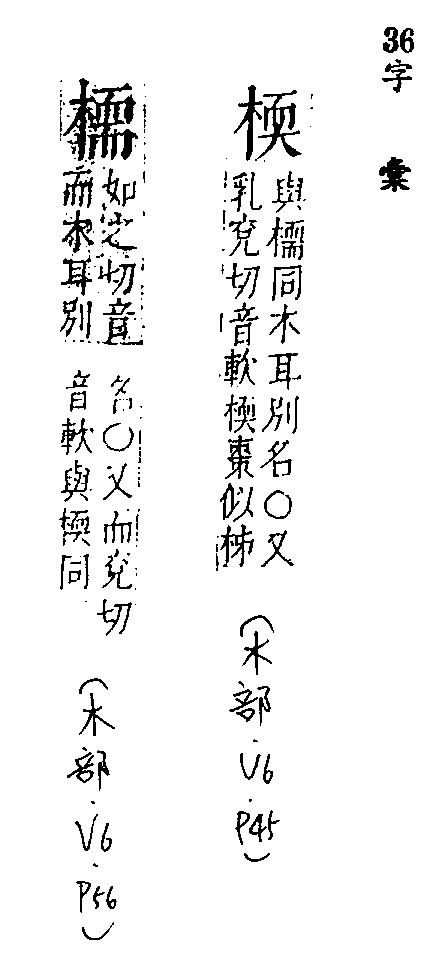 36字彙
檽
與檽同木耳別名〇又
乳兗切音軟檽棗似柹
(木部.V6.P45)
檽
如之切音
而木耳別
名〇又而兗切
音軟與檽同
(木部.V6.P56)